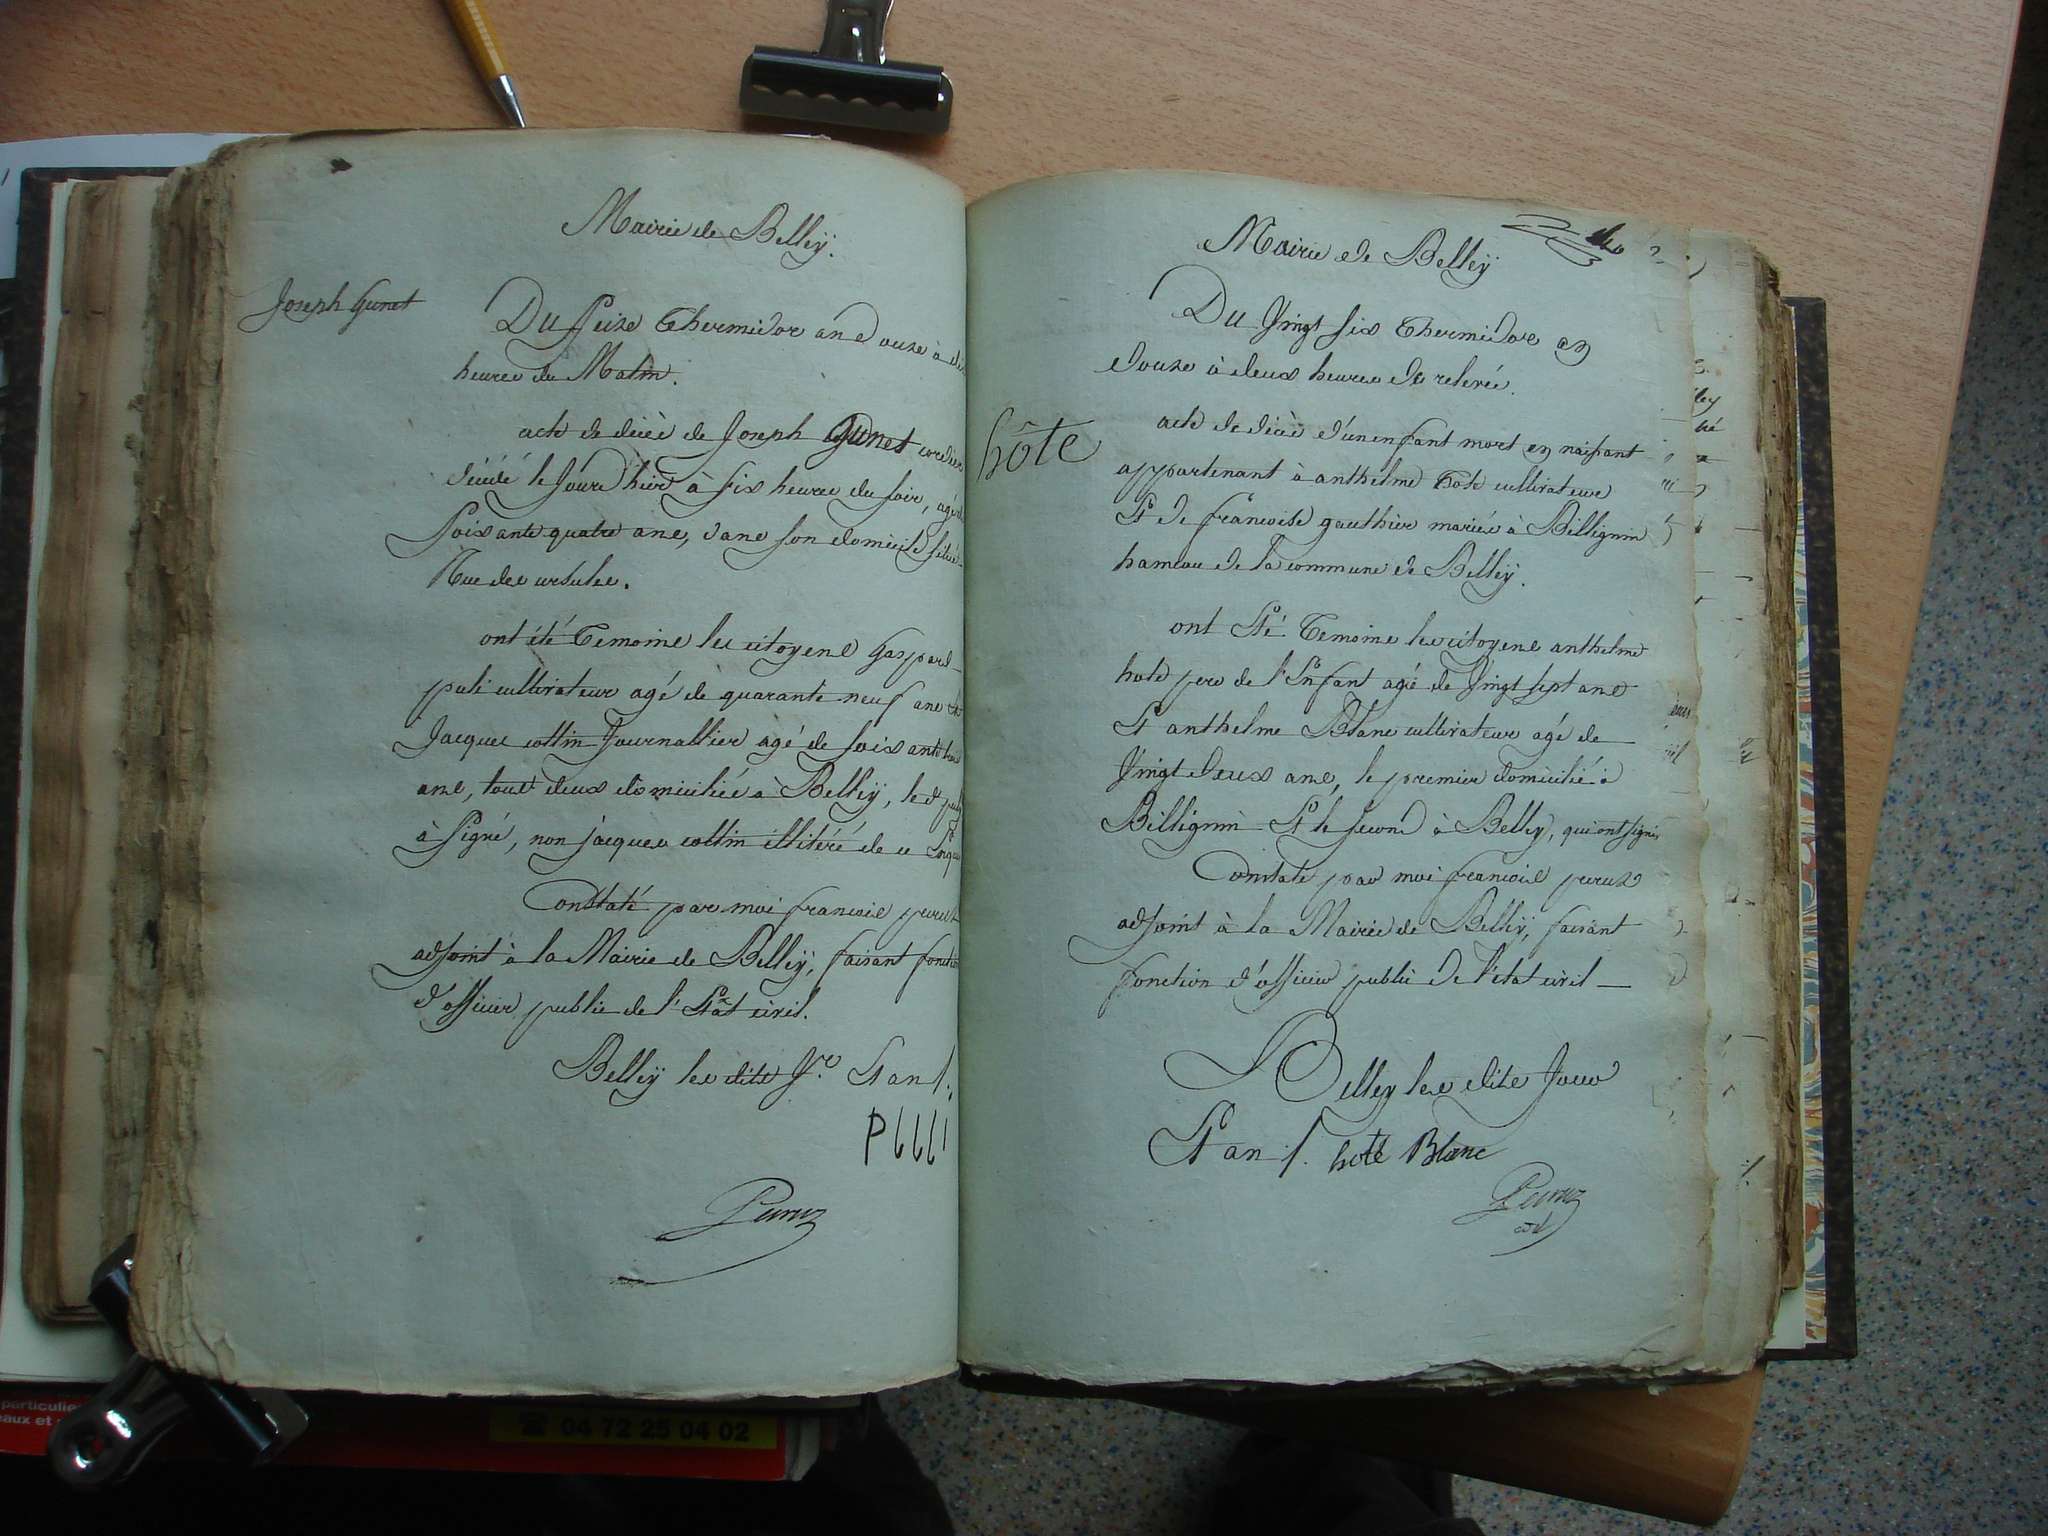 Mairie de Belleÿ.
Joseph Gunet
Du Seize Thermidor an douze à dix
heures du Matin.
acte de décès de Joseph Gunet cordier
décédé le Jour d'hier à six heures du soir, agé de
Soixante quatre ans, dans son domicile situé
Rue des ursules.
ont été Temoins les citoyens Gaspard
cultivateur agé de quarante neuf ans et
Jacques cottin Journallier agé de soixante trois
ans, tous deux domiciliés à Belleÿ, le d.
à Signé, non jacques cottin illitéré de ce Enquis
Constaté par moi françois peruz
adjoint à la Mairie de Belleÿ, faisant fonction
d'officier public de l'Etat civil.
Belleÿ les dits Jr. Et an /.
Peruz
Mairie de Belleÿ
Du Vingt six Thermidor an
douze à deux heures de relevée.
hôte
acte de décès d'un enfant mort en naissant
appartenant à anthelme hote cultivateur
Et de françoise gauthier mariés à Billignin
hameau de la commune de Belleÿ.
ont Eté Temoins les citoyens anthelme
hote pere de l'Enfant agé de Vingt sept ans
Et anthelme Blanc cultivateur agé de
Vingt deux ans, le premier domicilié à
Billignin Et le second à Belleÿ, qui ont signé,
Constaté par moi françois peruz
adjoint à la Mairie de Belleÿ, faisant
fonction d'officier public de l'état civil
Belley les dits Jour
Et an /. hote Blanc
Peruz
adj
particulie
eaux et
04 72 25 04 02